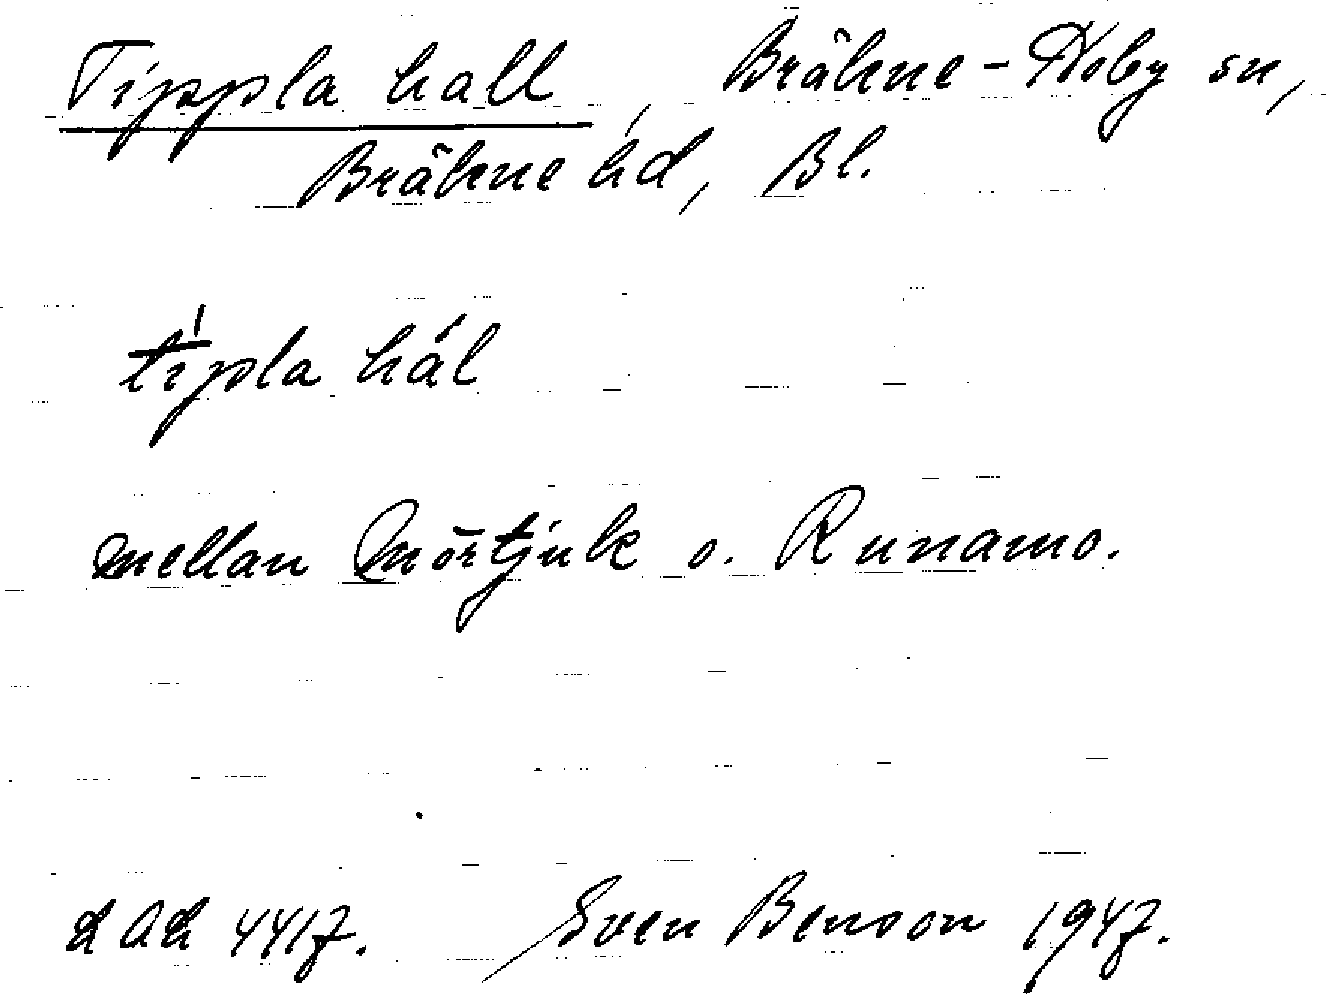 Tippla hall, Bräkne-Hoby sn,
Bräkne hd, Bl.
típla hál
mellan Mörtjuk o. Runamo.
LAL 4417. Sven Benson 1947.